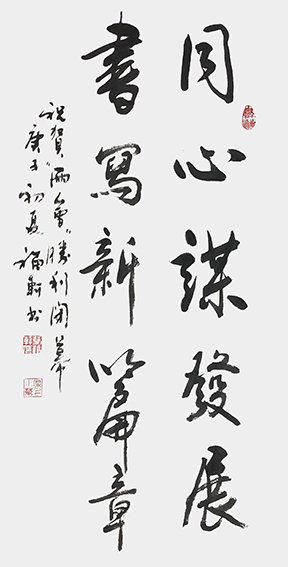 同心謀發展
書寫新篇章
祝賀"兩會"勝利閉幕
庚子初夏福軒书